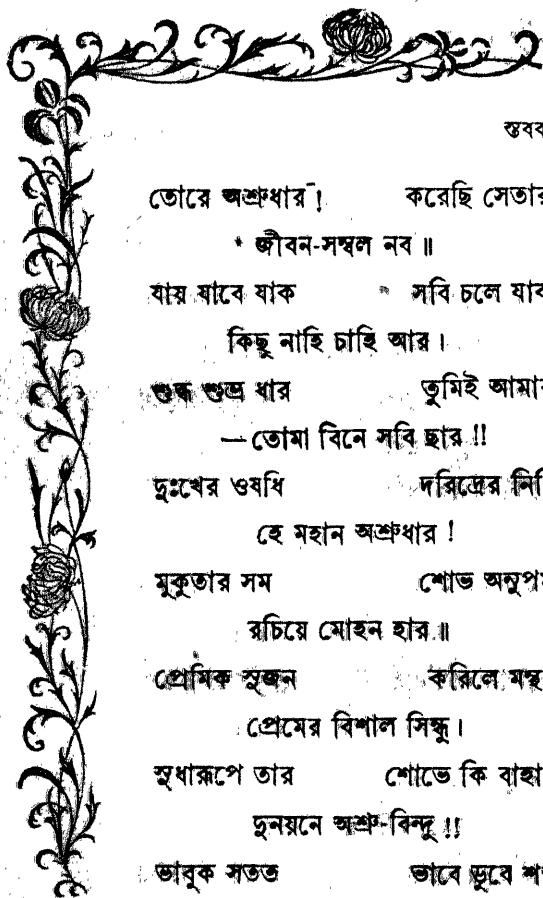 স্তবক
তোরে অশ্রুধার ! করেছি সেতার
জীবন-সম্বল নব ॥
যায় যাবে যাক সবি চলে যাক
কিছু নাহি চাহি আর।
শুদ্ধ শুভ্র ধার তুমিই আমার
—তোমা বিনে সবি ছার !!
দুঃখের ওষধি দরিদ্রের নিধি
হে মহান অশ্রুধার !
মুকুতার সম শোভ অনুপম
রচিয়ে মোহন হার॥
প্রেমিক সুজন করিলে মন্থ
প্রেমের বিশাল সিন্ধু।
সুধারূপে তার শোভে কি বাহা
দুনয়নে অশ্রু-বিন্দু !!
ভাবুক সতত ভাবে ডুবে শ